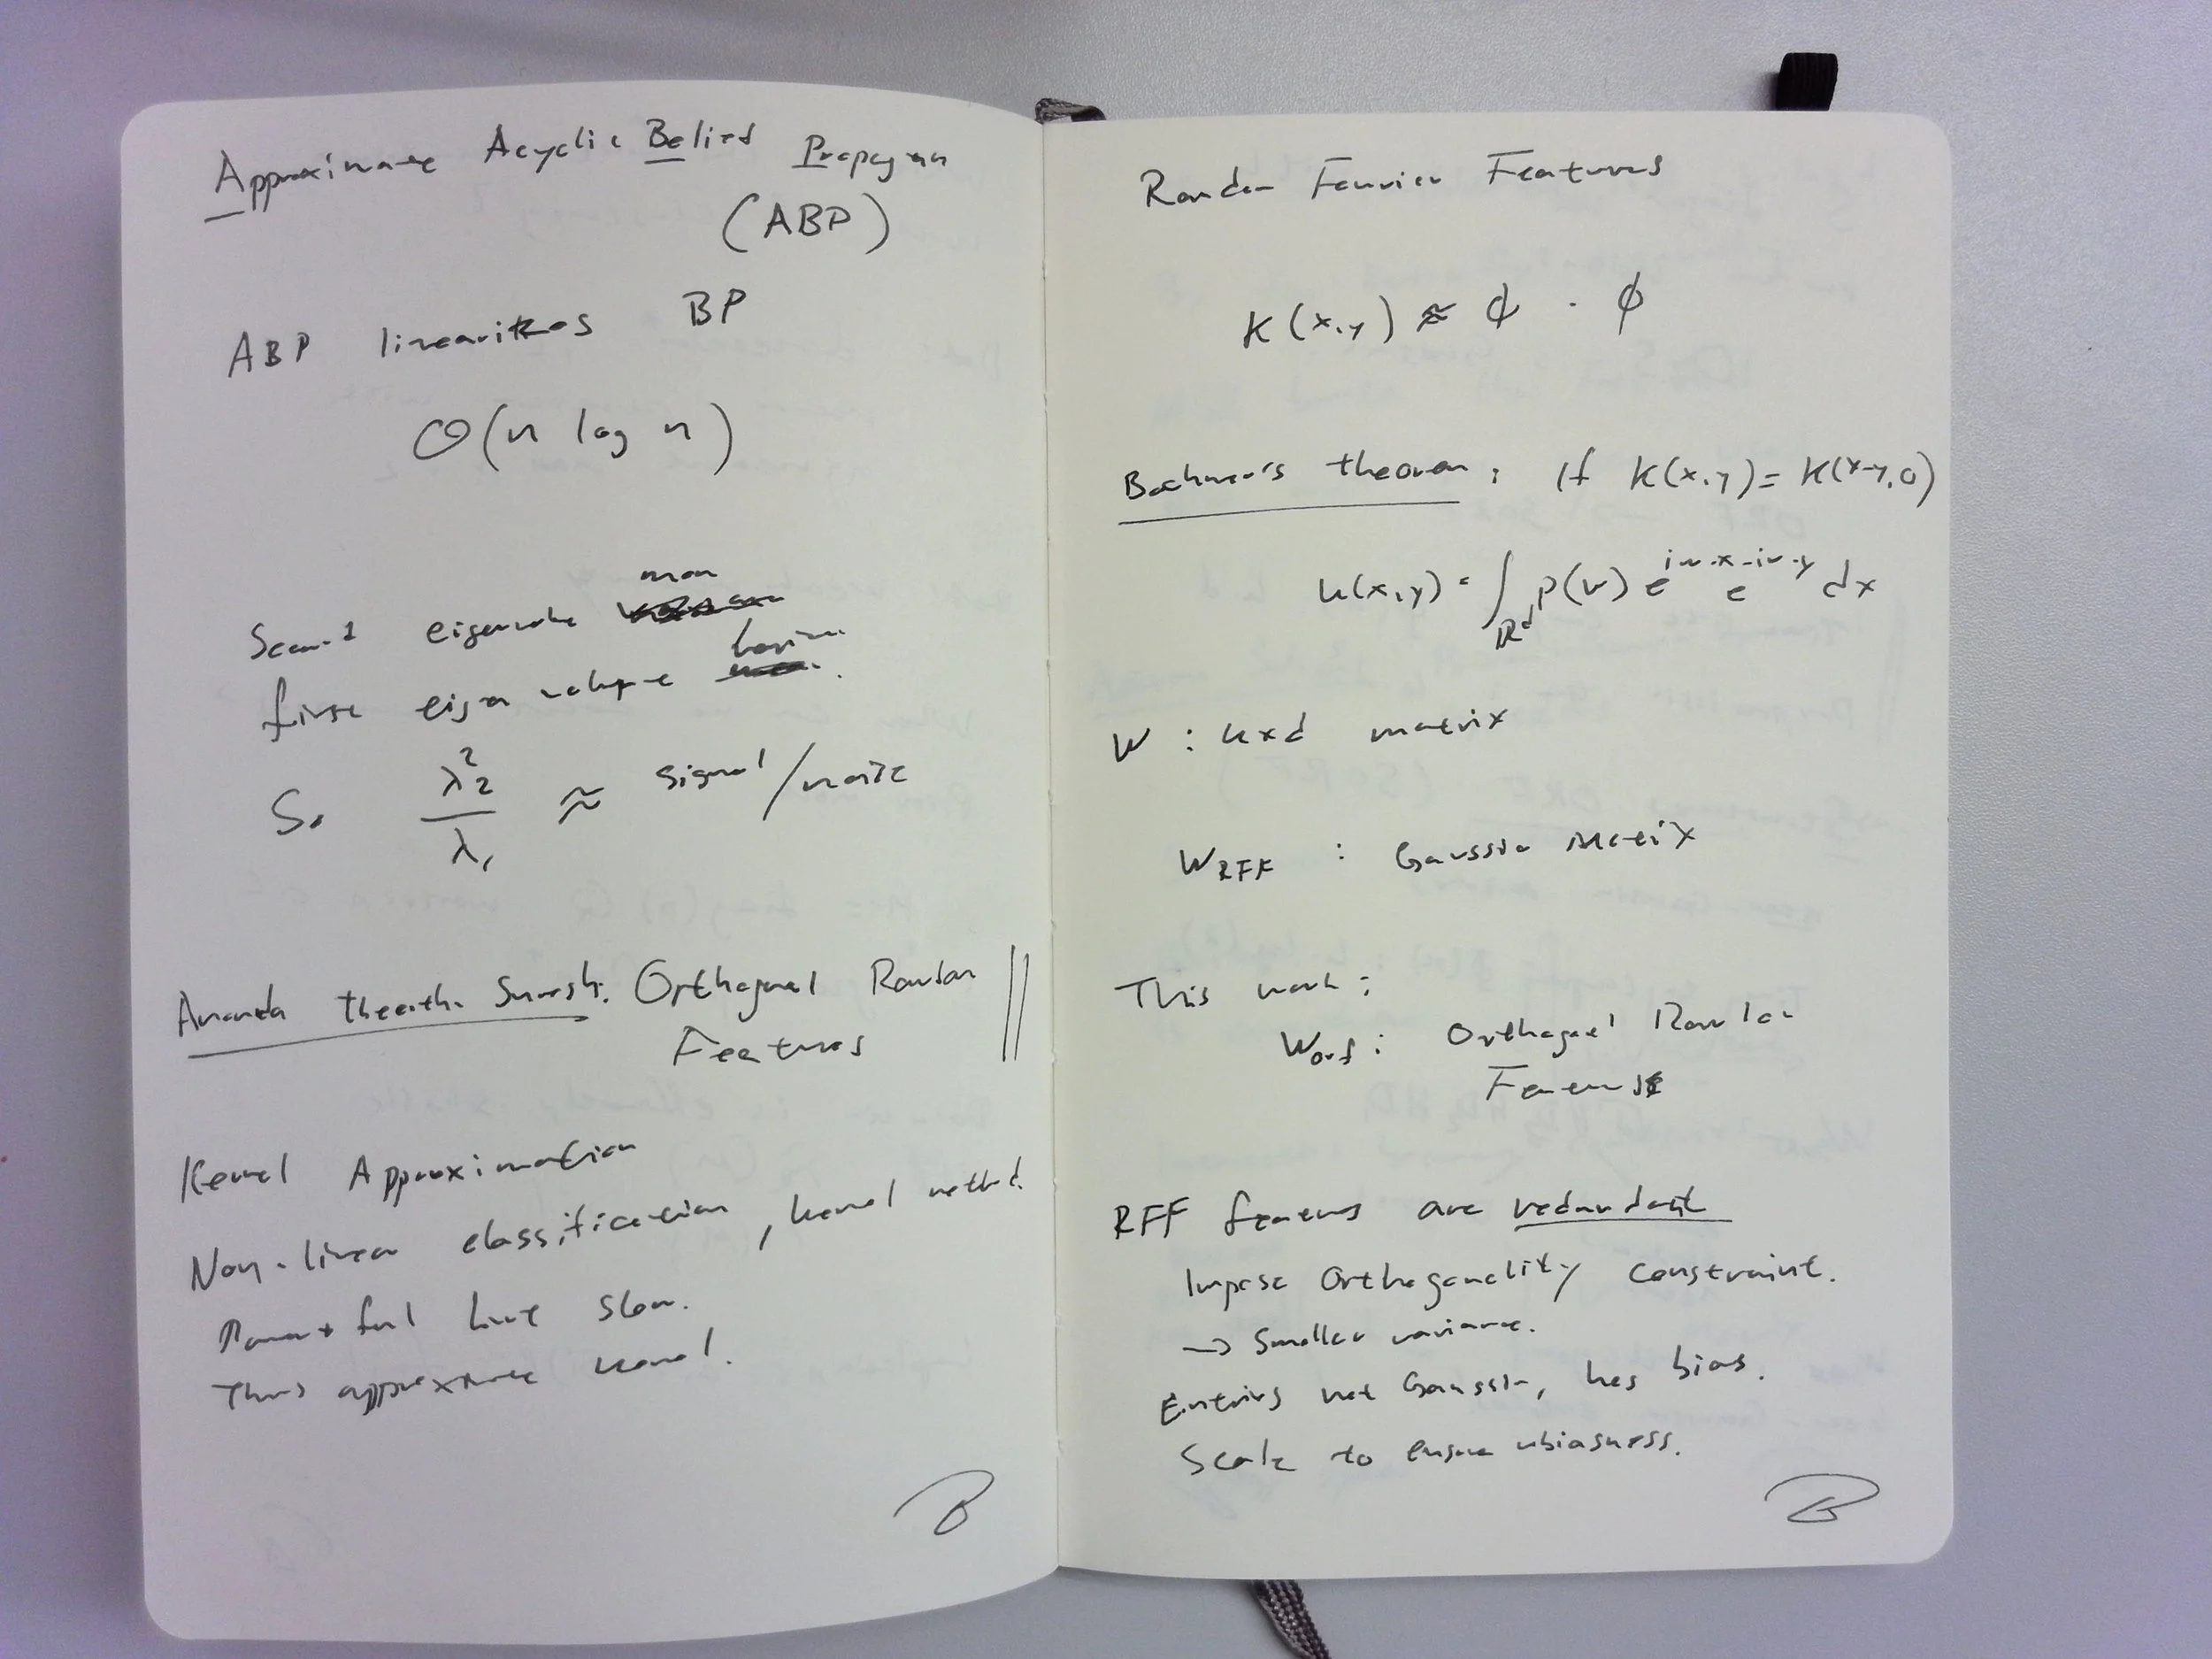 Approximate Acyclic Belief Propagation
(ABP)
ABP linearizes BP
O(n log n)
Second eigenvalue
first eigen value
So λ₂²/λ₁ ≈ signal/noise
Ananda Theertha Suresh: Orthogonal Random
Features
Kernel Approximation
Non-linear classification, kernel method.
Powerful but slow.
Thus approximate kernel.
Random Fourier Features
K(x,y) ≈ ϕ · ϕ
Bochner's theorem: if K(x,y) = K(x-y,0)
k(x,y) = ∫_{ℝ^d} p(w) e^{iw·x} e^{-iw·y} dx
W : k×d matrix
W_RFF : Gaussian matrix
This work:
W_orf : Orthogonal Random
Features
RFF features are redundant
Impose Orthogonality constraint.
→ Smaller variance.
Entries not Gaussian, has bias.
Scale to ensure ubiasness.